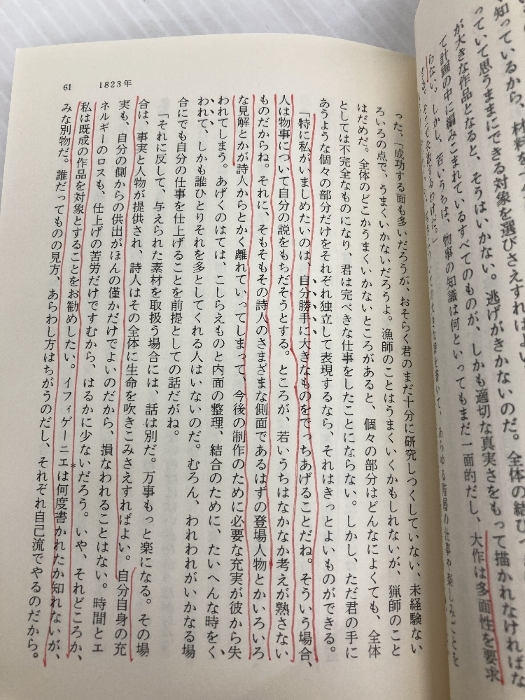 知っているから、材料を
っていて思うままにできる対象を選びさえすればよい
が大きな作品となると、そうはいかない。逃げがきかないのだ。全体の結び
て計画の中に編みこまれているすべてのものが、しかも適切な真実さをもって描かれなければな
らない。しかし、若いうちは、物事の知識は何といってもまだ一面的だし、大作は多面性を要求
61 1823年
った。「成功する面も多いだろうが、おそらく君のまだ十分に研究しつくしていない、未経験ない
ろいろの点で、うまくいかないだろうよ。漁師のことはうまくいくかもしれないが、猟師のこと
はだめだ。全体のどこかうまくいかないところがあると、個々の部分はどんなによくても、全体
としては不完全なものになり、君は完ぺきな仕事をしたことにならない。しかし、ただ君の手に
あうような個々の部分だけをそれぞれ独立して表現するなら、それはきっとよいものができる。
「特に私がいましめたいのは、自分勝手に大きなものをでっちあげることだね。そういう場合、
人は物事について自分の説をもちだそうとする。ところが、若いうちはなかなか考えが熟さない
ものだからね。それに、そもそもその詩人のさまざまな側面であるはずの登場人物とかいろいろ
な見解とかが詩人からとかく離れていってしまって、今後の制作のために必要な充実が彼から失
われてしまう。あげくのはては、こしらえものと内面の整理、結合のために、たいへんな時をく
われて、しかも誰ひとりそれを多としてくれる人はいないのだ。むろん、われわれがいかなる場
合にでも自分の仕事を仕上げることを前提としての話だがね。
「それに反して、与えられた素材を取扱う場合には、話は別だ。万事もっと楽になる。その場
合は、事実と人物が提供され、詩人はその全体に生命を吹きこみさえすればよい。自分自身の充
実も、自分の側からの供出がほんの僅かだけでよいのだから、損なわれることはない。時間とエ
ネルギーのロスも、仕上げの苦労だけですむから、はるかに少ないだろう。いや、それどころか、
私は既成の作品を対象とすることをお勧めしたい。イフィゲーニエは何度書かれたか知れないが、
みな別物だ。誰だってものの見方、あらわし方はちがうのだし、それぞれ自己流でやるのだから。